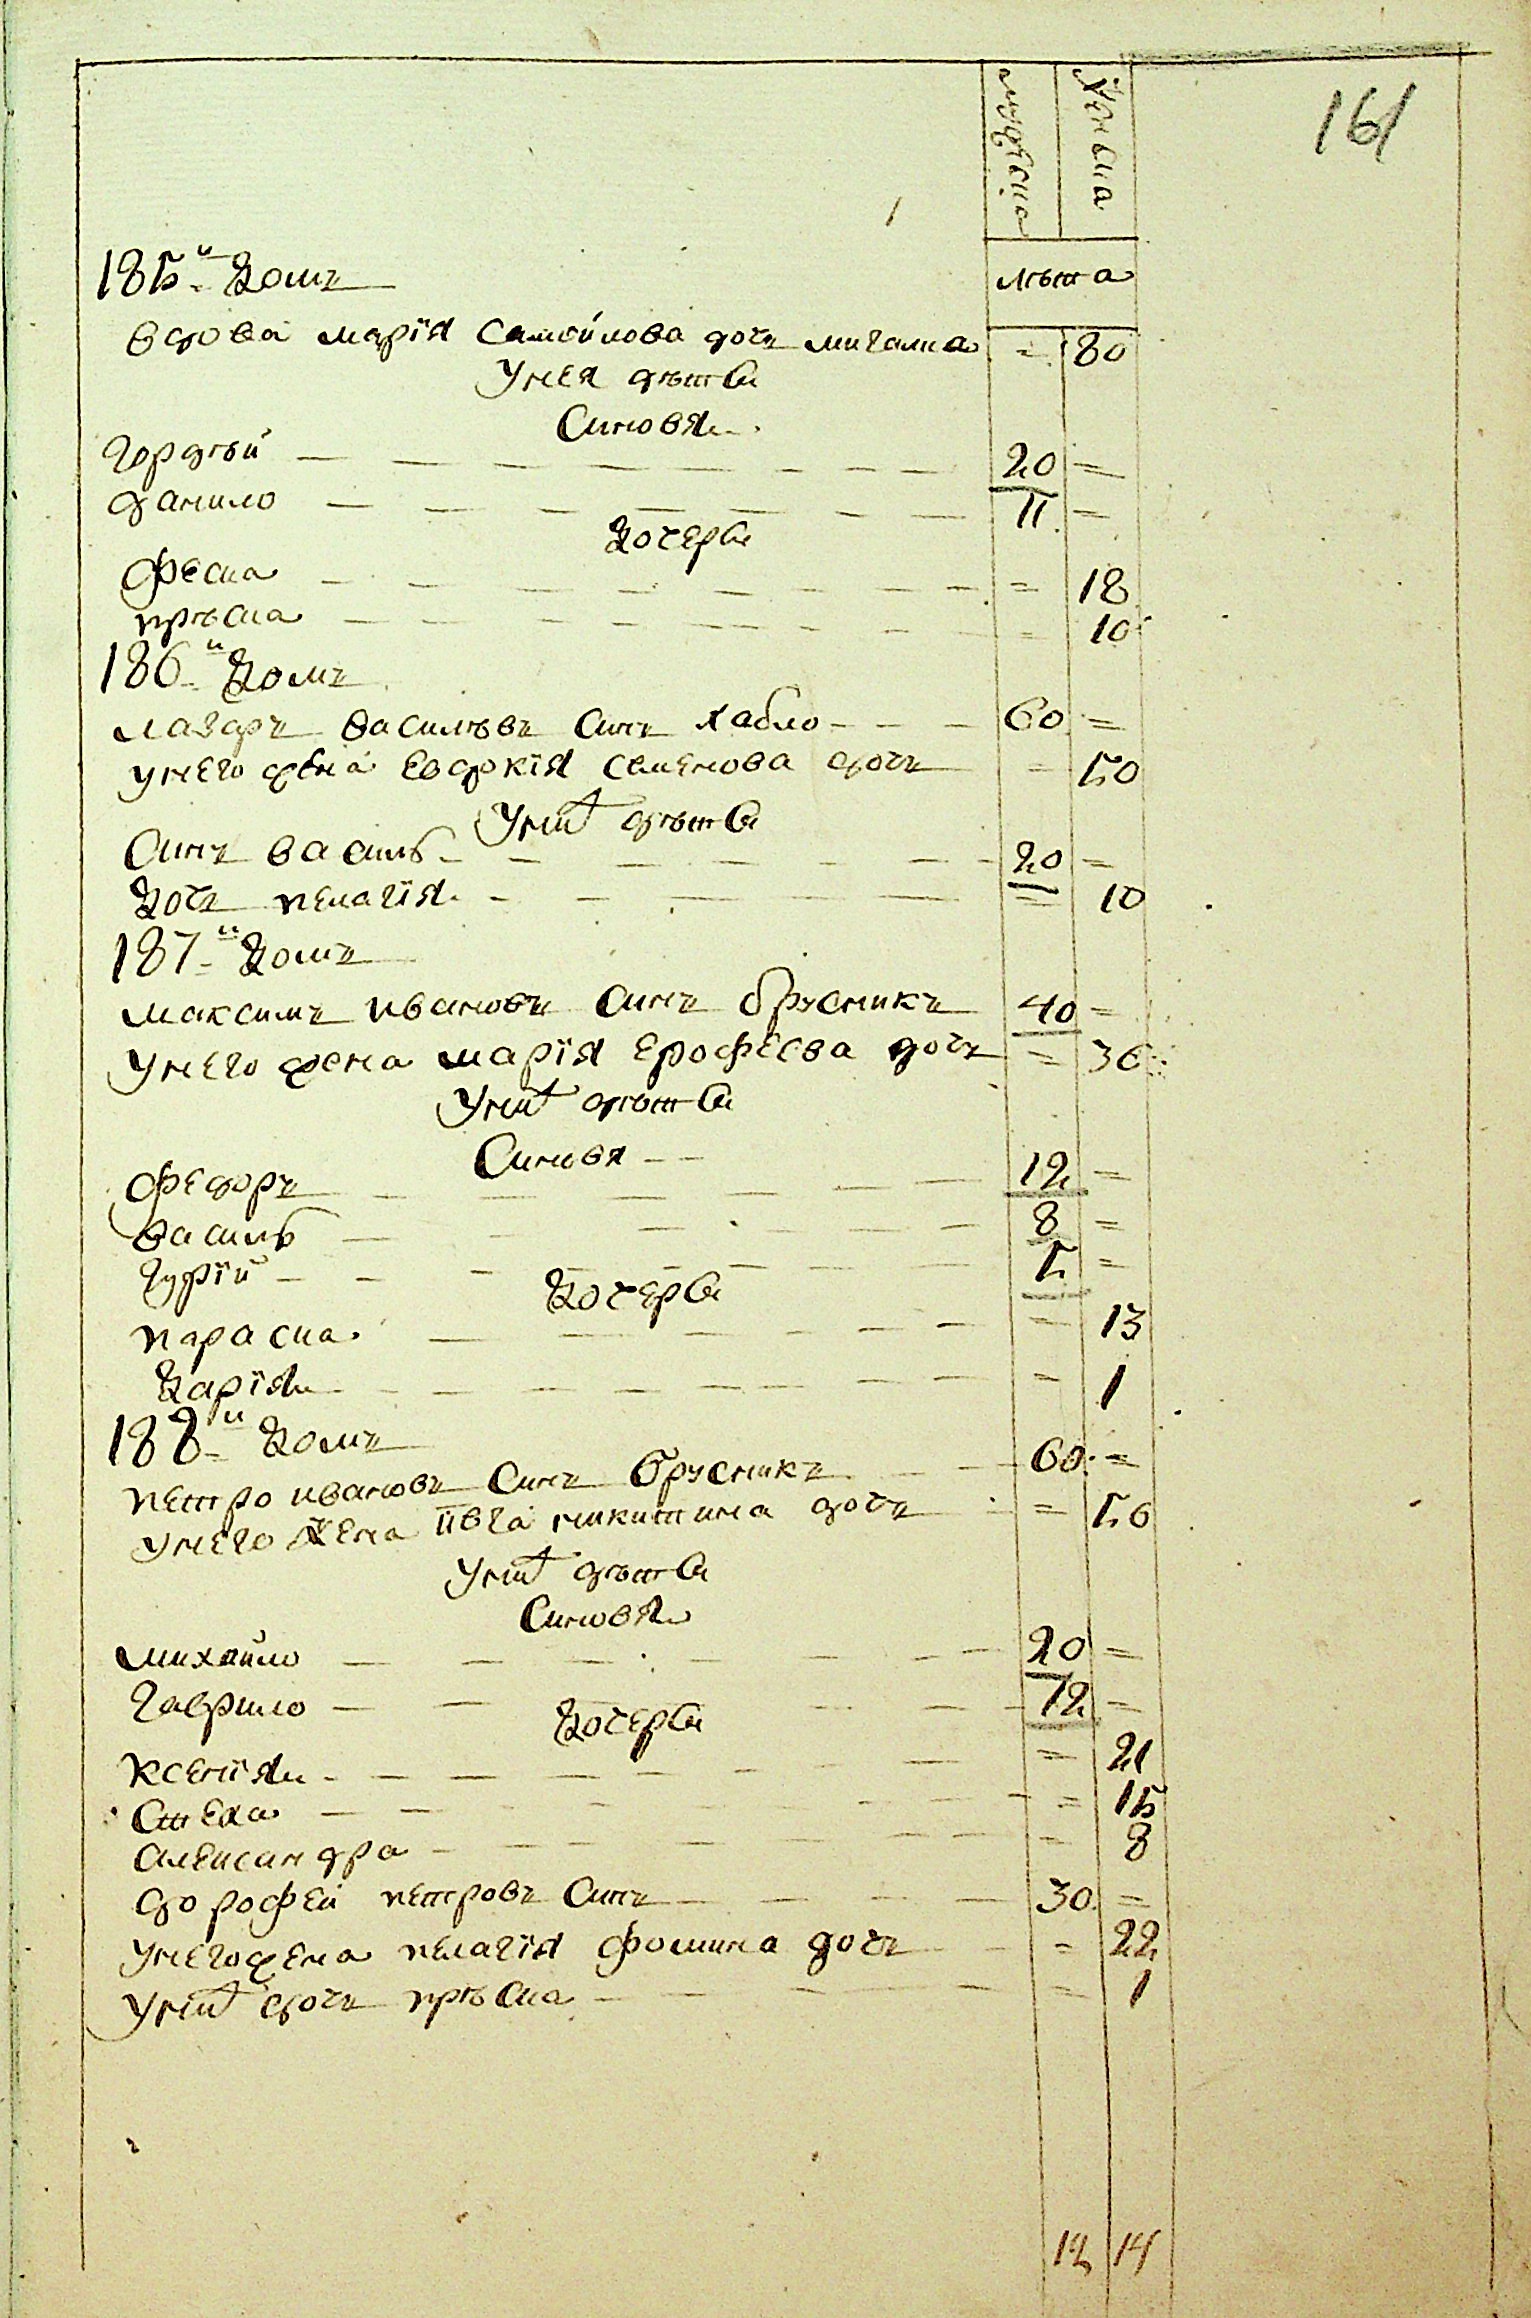 161
мужеска женска
лѣта
185й домъ
вдова марїя самойлова дочъ мигалка = 80
У нея дѣти
Синовя
Гордѣй 20 =
данило 11 =
Дочери
Феска = 18
прѣска = 10
186й домъ
лазаръ василѣвъ синъ хабло 60 =
у него жена евдокїя семенова дочъ = 50
У нихъ дѣти
Синъ василь 20 =
Дочъ пелагїя = 10
187й домъ
максимъ ивановъ синъ брусникъ 40 =
у него жена марїя ерофѣева дочъ = 36
У нихъ дѣти
Синовя
Федоръ 12 =
василь 8 =
Гурїй 5 =
Дочери
параска = 13
Дарїя = 1
188й домъ
петро ивановъ синъ брусникъ 60 =
у него жена ївга никитина дочъ = 56
У нихъ дѣти
Синовя
михайло 20 =
Гаврило 12 =
Дочери
ксенїя = 21
Стеха = 15
александра = 8
дорофей петровъ синъ 30 =
у него жена пелагїя фомина дочъ = 22
У нихъ дочъ прѣска = 1
12 14